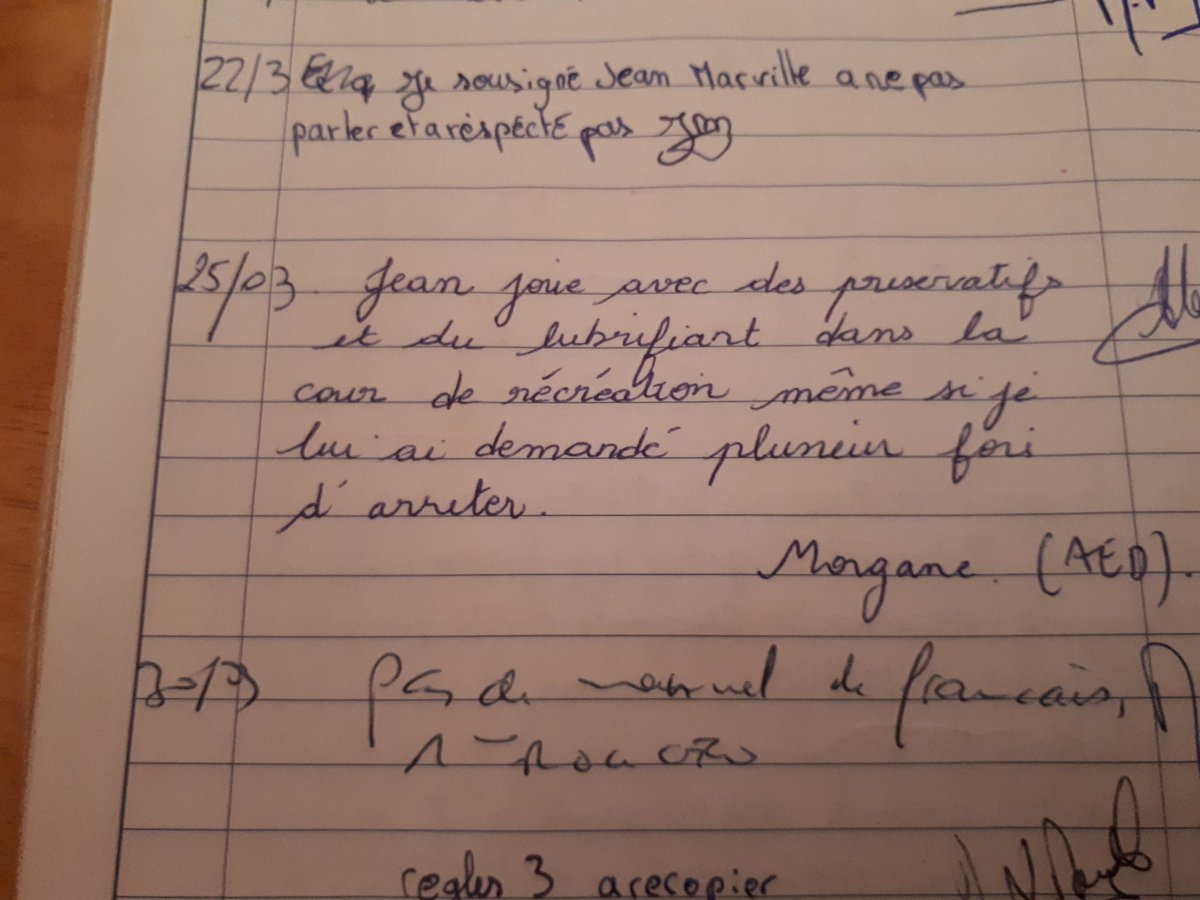 22/3 Je sousigné Jean Macville a ne pas
parler et a réspécté pas Jean
25/03 Jean joue avec des preservatifs
et du lubrifiant dans la
cour de récréation même si je
lui ai demandé plusieur fois
d'arreter.
Morgane. (AED).
Pas de manuel de français,
regles 3 a recopier